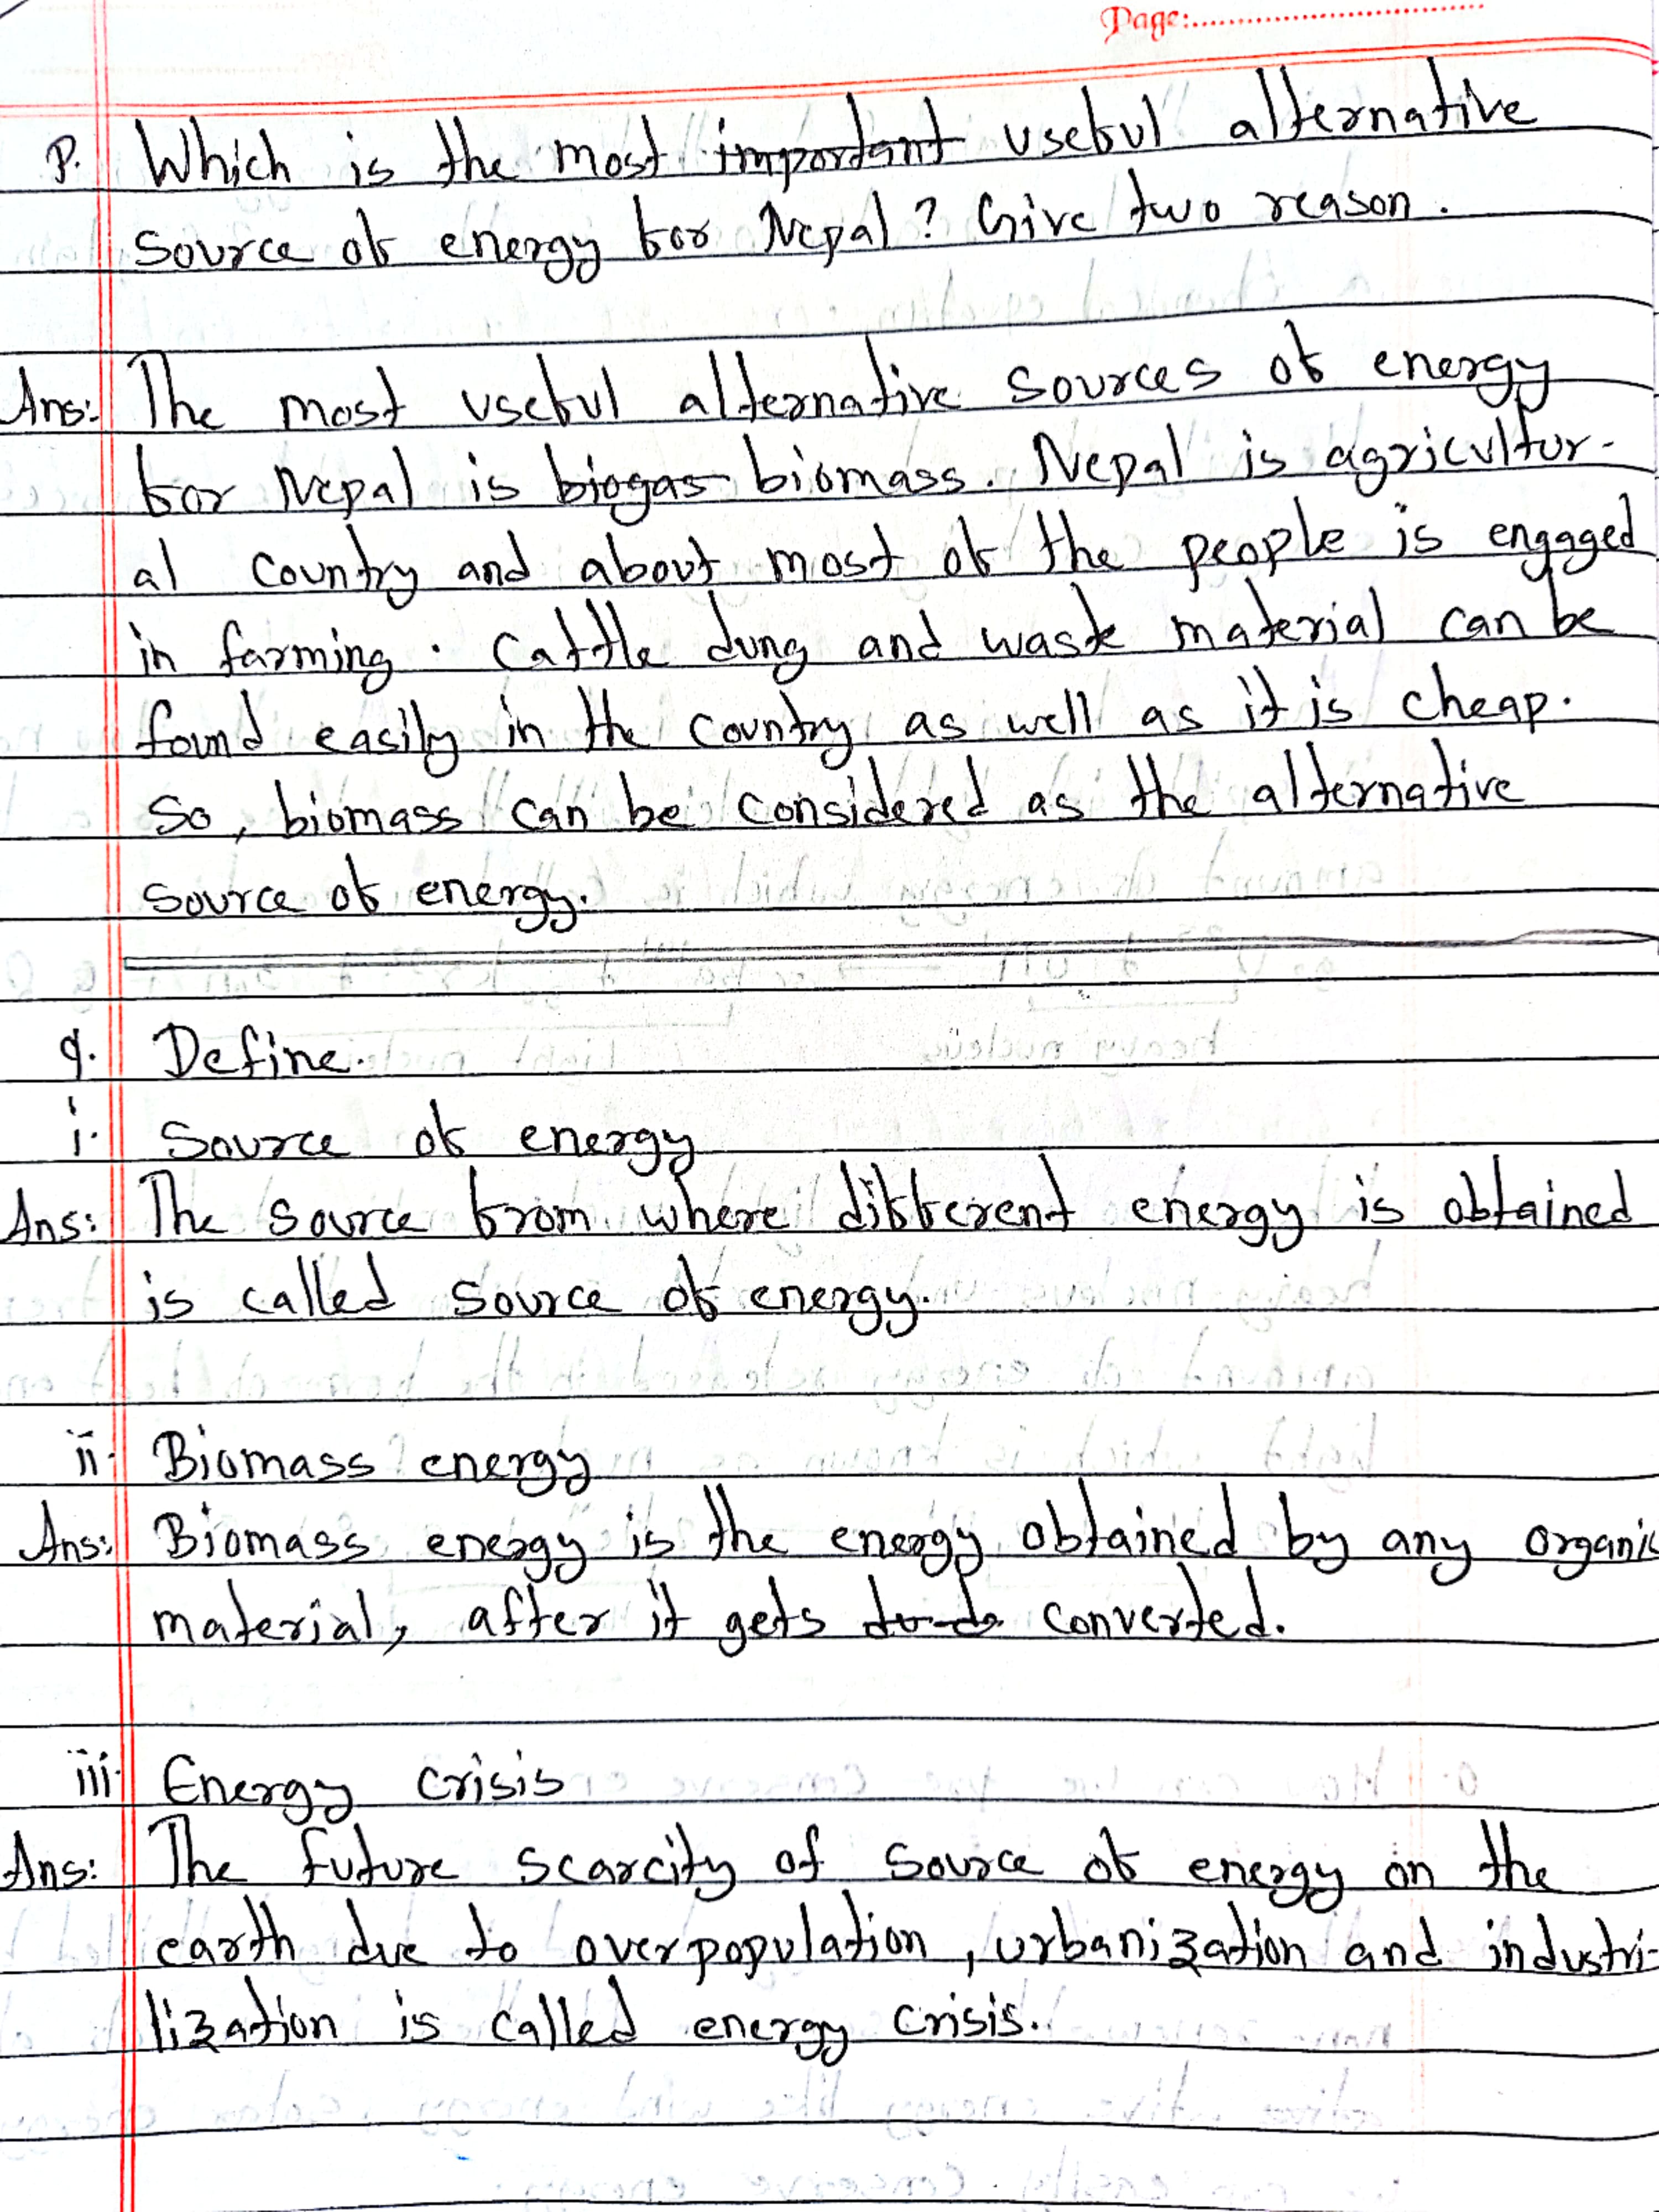 Page:
P. Which is the most important useful alternative
source of energy for Nepal? Give two reason.
Ans: The most useful alternative sources of energy
for Nepal is biogas biomass. Nepal is agricultur-
al country and about most of the people is engaged
in farming. Cattle dung and waste material can be
found easily in the country as well as it is cheap.
So, biomass can be considered as the alternative
source of energy.
q. Define.
i. Source of energy
Ans: The source from where different energy is obtained
is called source of energy.
ii. Biomass energy
Ans: Biomass energy is the energy obtained by any organic
material, after it gets converted.
iii. Energy crisis
Ans: The future scarcity of source of energy on the
earth due to overpopulation, urbanization and industri-
lization is called energy crisis.